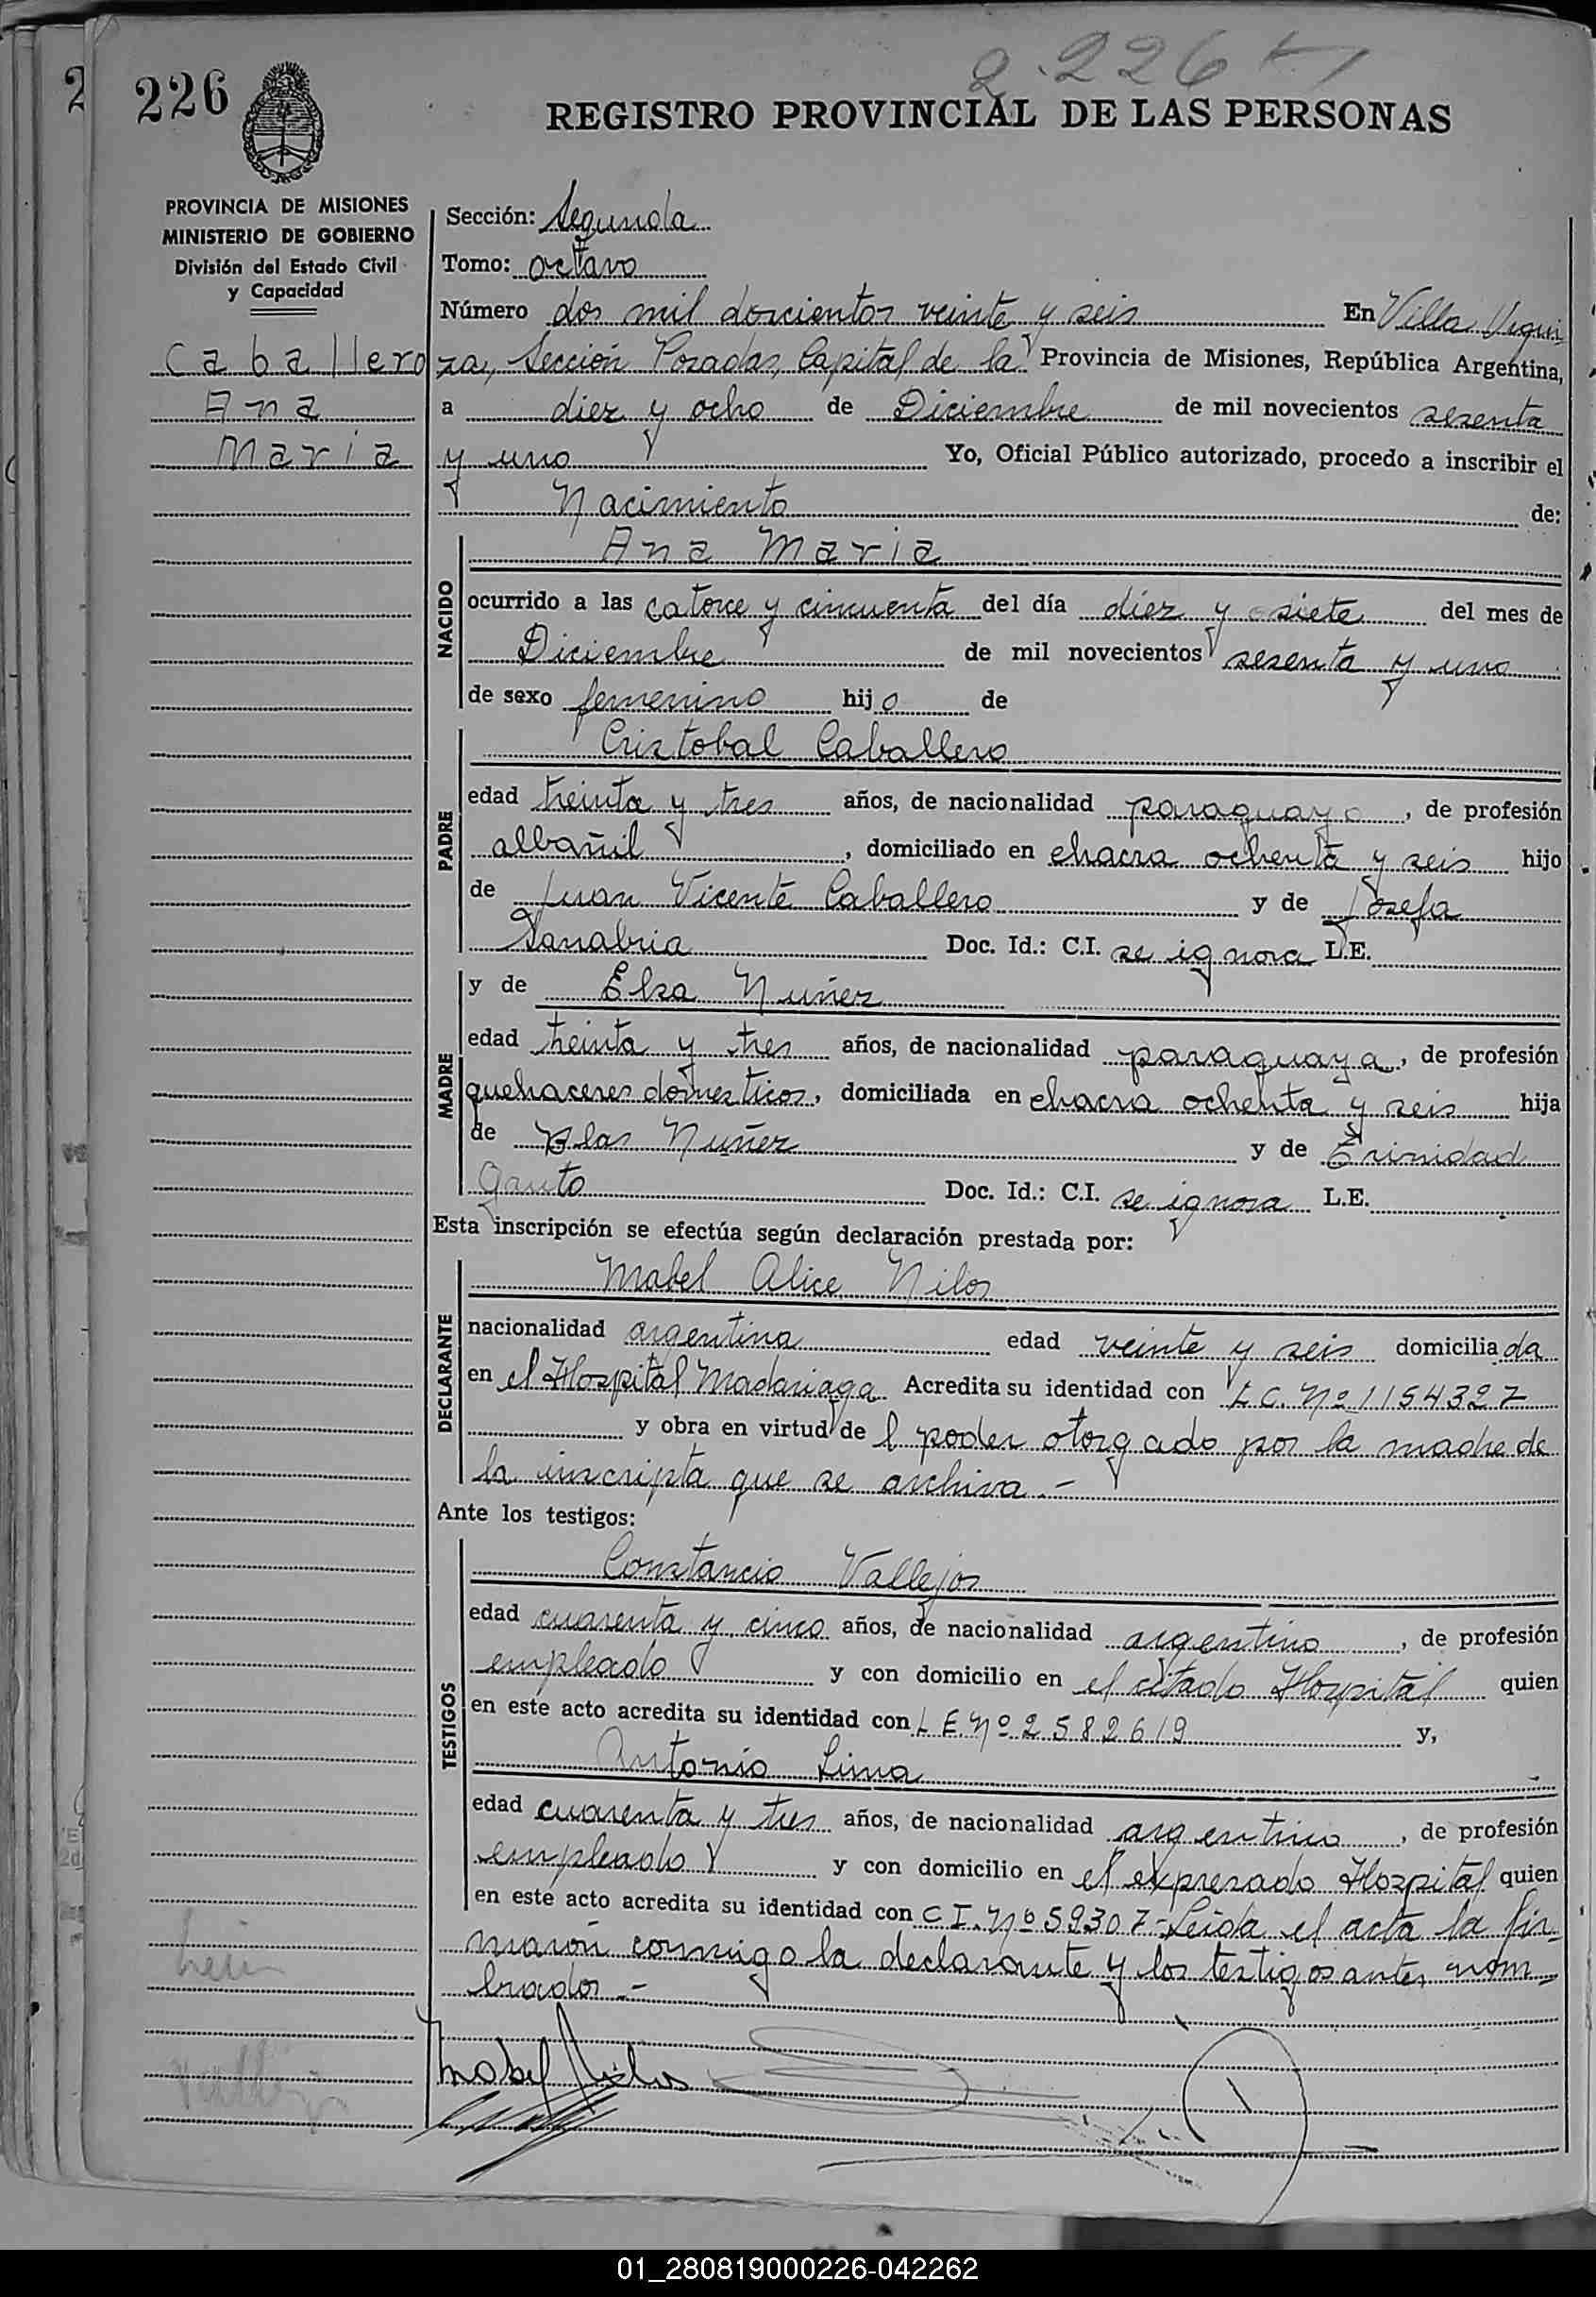 2.226
226
REGISTRO PROVINCIAL DE LAS PERSONAS
PROVINCIA DE MISIONES
MINISTERIO DE GOBIERNO
División del Estado Civil
y Capacidad
Caballero
Ana
Maria
Sección: Segunda
Tomo: octavo
Número dos mil doscientos veinte y seis En Villa Urqui
za, Sección Posadas, Capital de la Provincia de Misiones, República Argentina,
a diez y ocho de Diciembre de mil novecientos sesenta
y uno Yo, Oficial Público autorizado, procedo a inscribir el
Nacimiento de:
NACIDO
Ana Maria
ocurrido a las catorce y cincuenta del día diez y siete del mes de
Diciembre de mil novecientos sesenta y uno
de sexo femenino hijo de
PADRE
Cristobal Caballero
edad treinta y tres años, de nacionalidad paraguayo, de profesión
albañil, domiciliado en chacra ochenta y seis hijo
de Juan Vicente Caballero y de Josefa
Sanabria Doc. Id.: C.I. se ignora L.E.
MADRE
y de Elsa Nuñez
edad treinta y tres años, de nacionalidad paraguaya, de profesión
quehaceres domesticos, domiciliada en chacra ochenta y seis hija
de Blas Nuñez y de Trinidad
Gauto Doc. Id.: C.I. se ignora L.E.
Esta inscripción se efectúa según declaración prestada por:
DECLARANTE
Mabel Alice Nilos
nacionalidad argentina edad veinte y seis domiciliada
en el Hospital Madariaga Acredita su identidad con L C. Nº 1154327
y obra en virtud de l poder otorgado por la madre de
la inscripta que se archiva.-
Ante los testigos:
TESTIGOS
Constancio Vallejos
edad cuarenta y cinco años, de nacionalidad argentino, de profesión
empleado y con domicilio en el citado Hospital quien
en este acto acredita su identidad con L E. Nº 2582619 y,
Antonio Lima
edad cuarenta y tres años, de nacionalidad argentino, de profesión
empleado y con domicilio en el expresado Hospital quien
en este acto acredita su identidad con C I. Nº 59307-Leida el acta la fir-
maron conmigo la declarante y los testigos antes nom-
brados.-
01_280819000226-042262